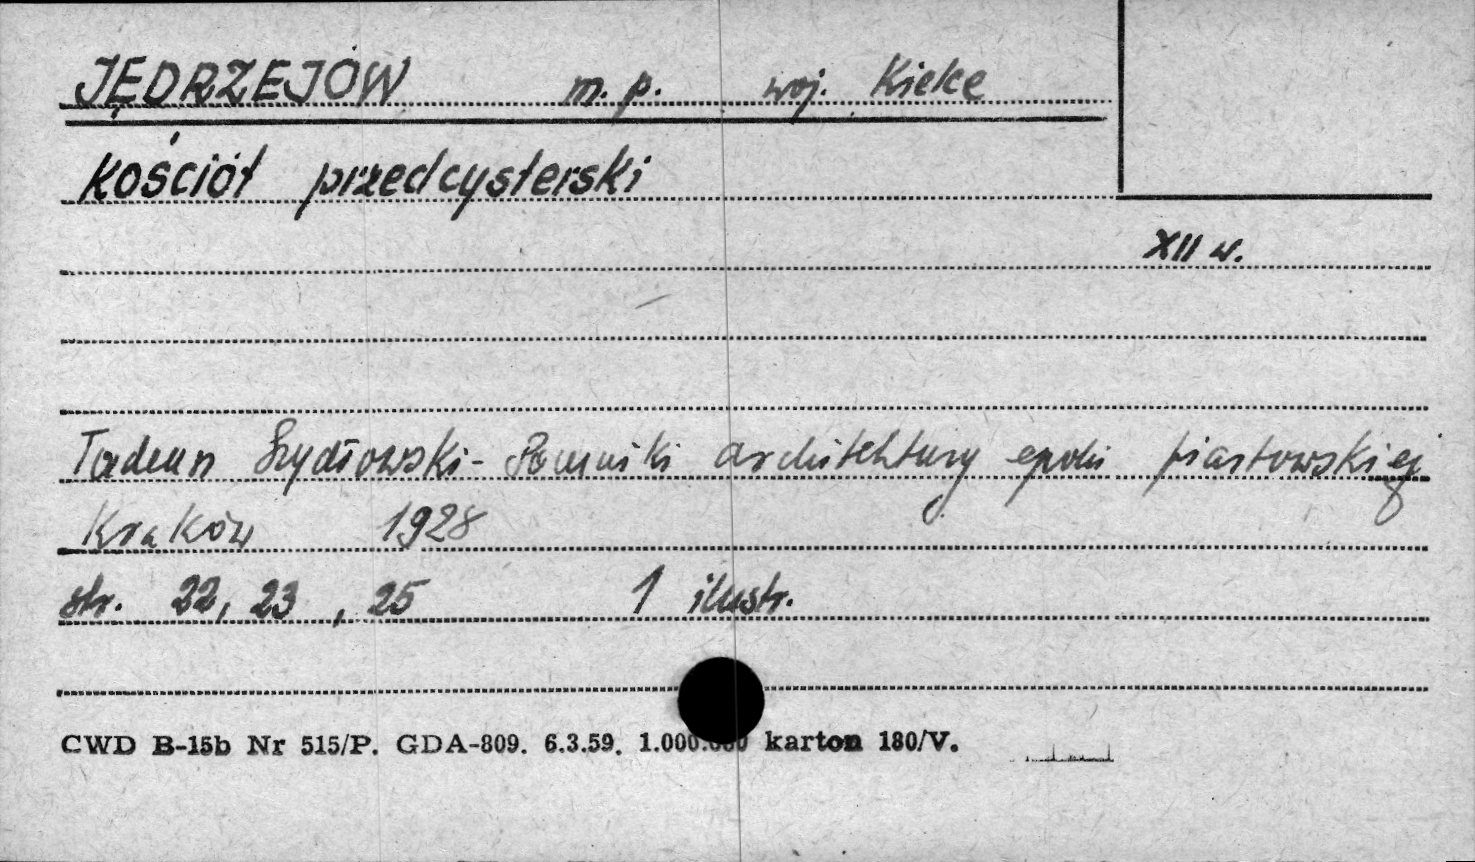 JĘDRZEJÓW m. p. woj. Kielce
Kościół przedcysterski
XII w.
Tadeusz Szydłowski - Pomniki architektury epoki piastowskiej
Kraków 1928
str. 22, 23, 25 1 ilustr.
CWD B-15b Nr 515/P. GDA-809. 6.3.59. karton 180/V.